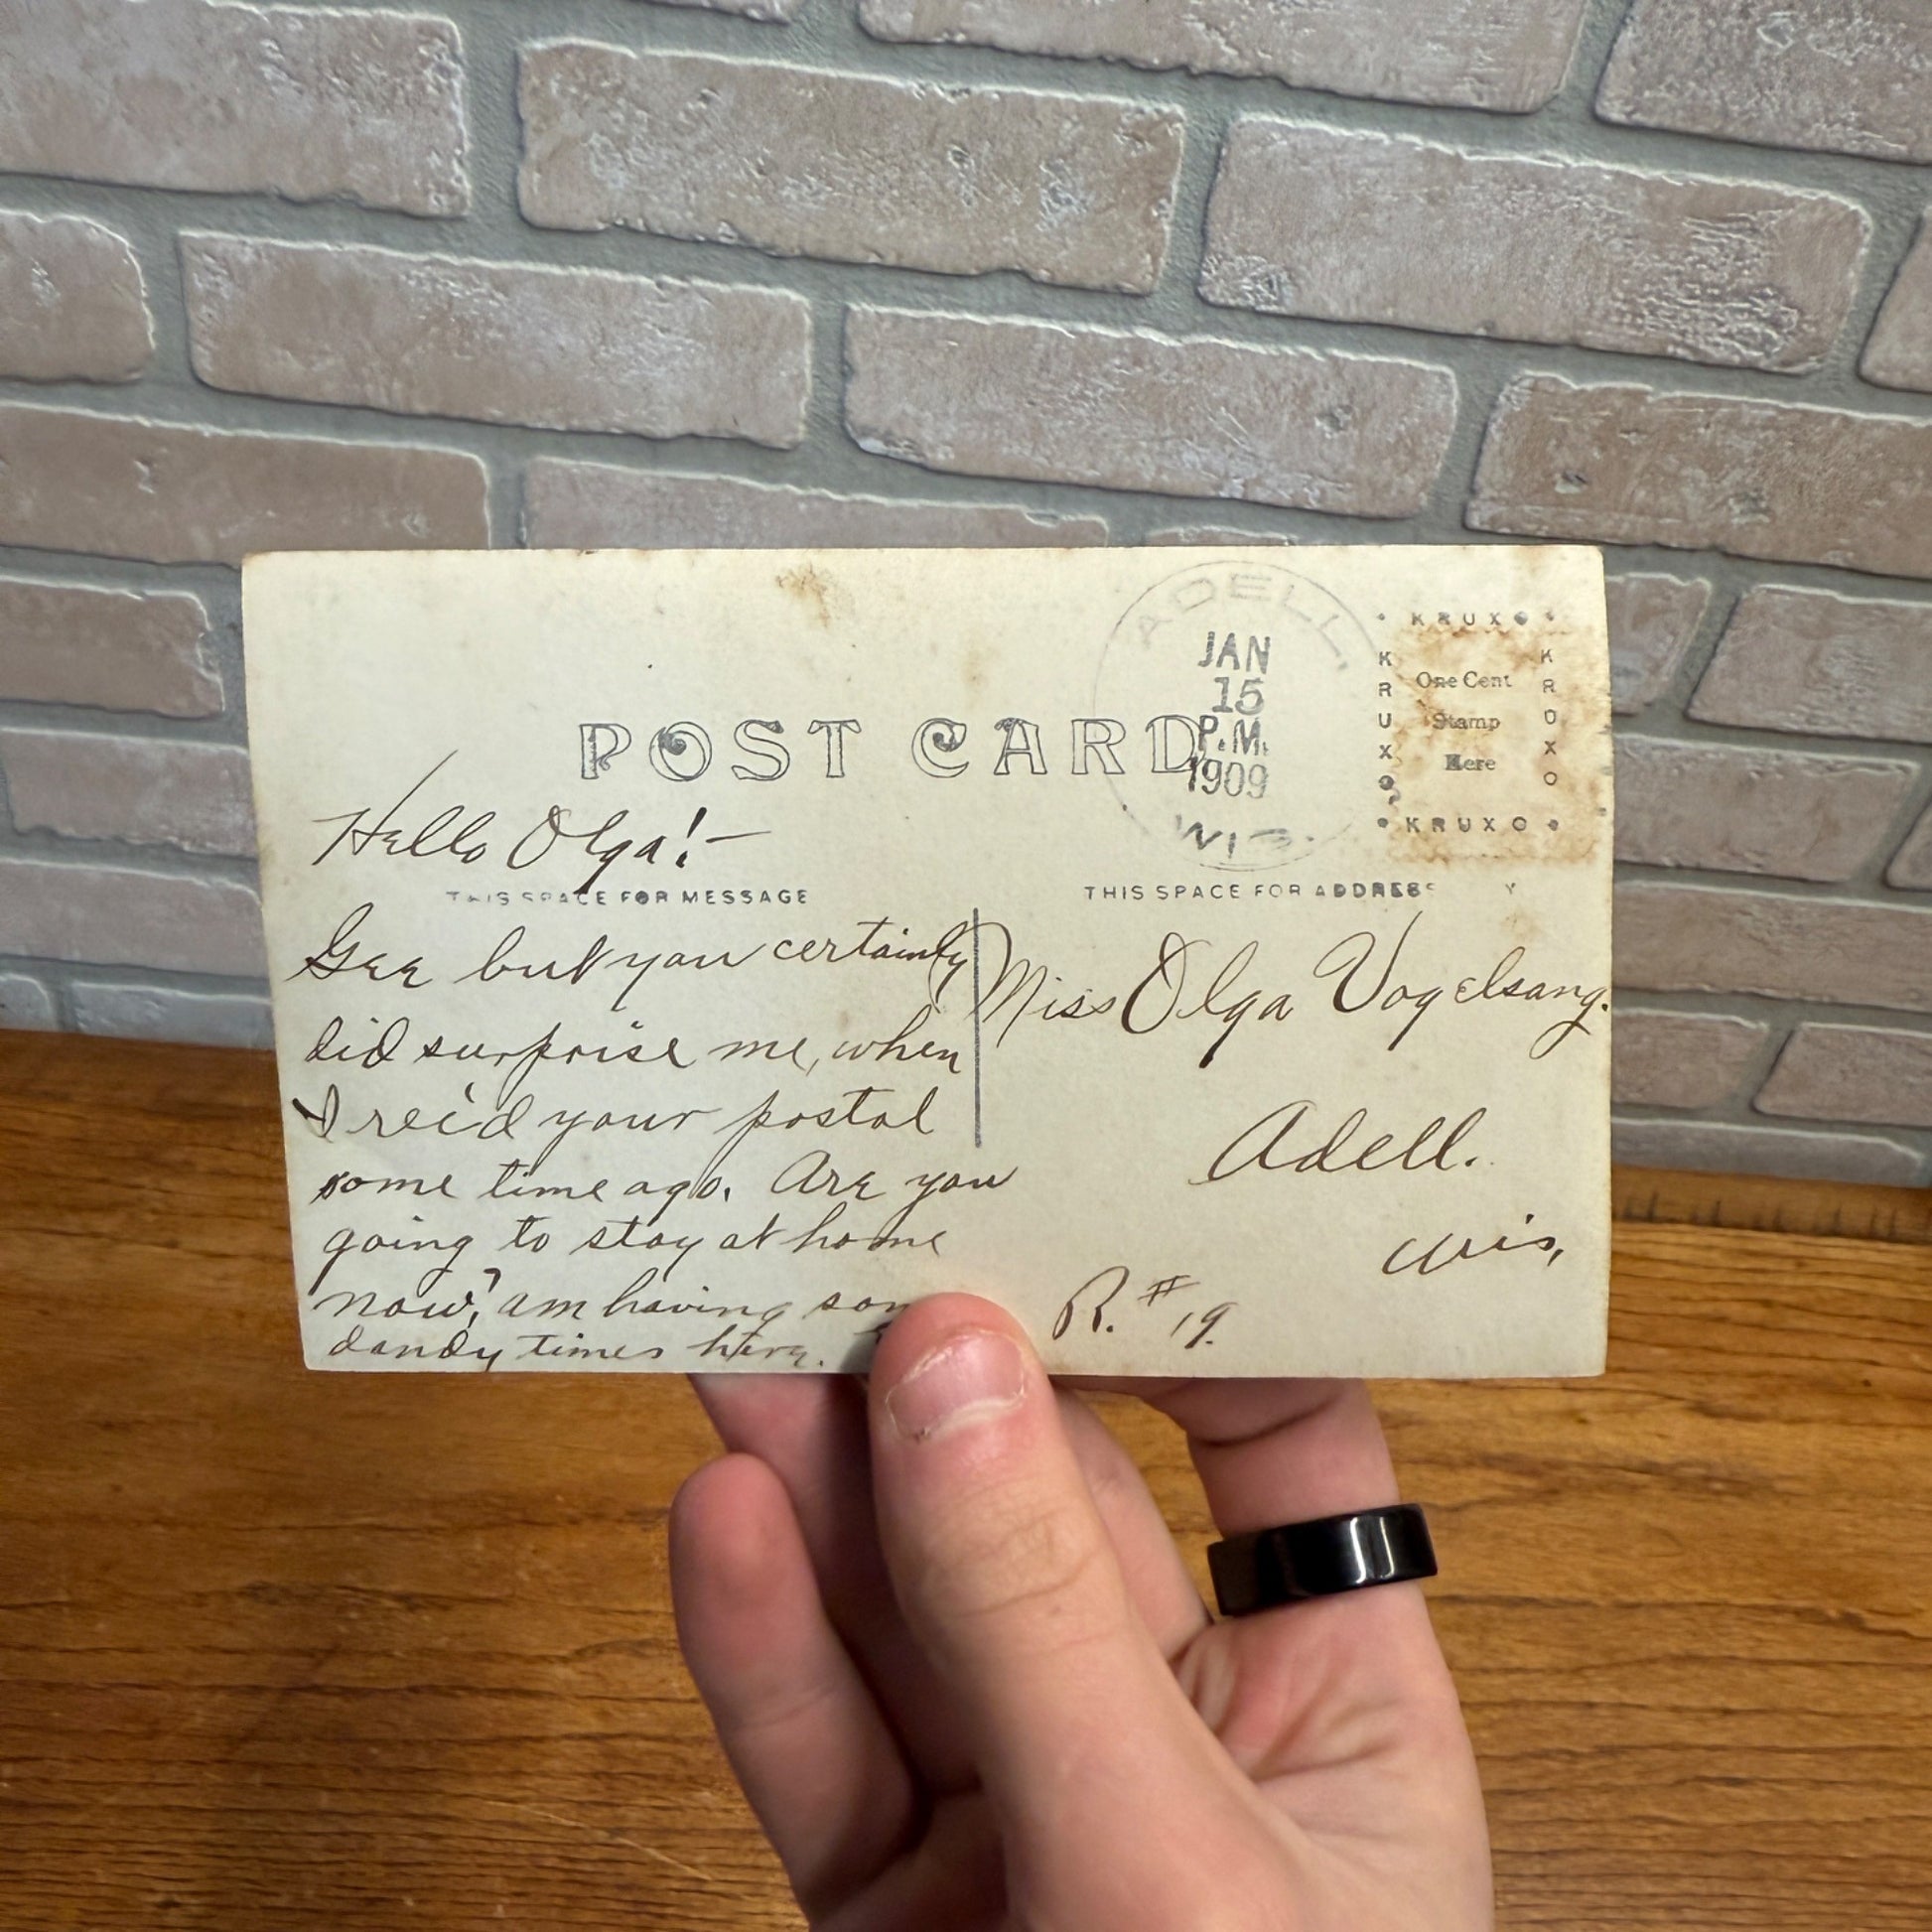 ADELL,
JAN
15
P.M.
1909
WIS.
KRUXO
KRUXO
KRUXO
KRUXO
One Cent
Stamp
Here
POST CARD
Hello Olga!—
THIS SPACE FOR MESSAGE
Gee but you certainly
did surprise me, when
I rec'd your postal
some time ago. Are you
going to stay at home
now? am having
dandy times here.
THIS SPACE FOR ADDRESS
Miss Olga Vogelsang.
Adell.
Wis,
R. # 19.